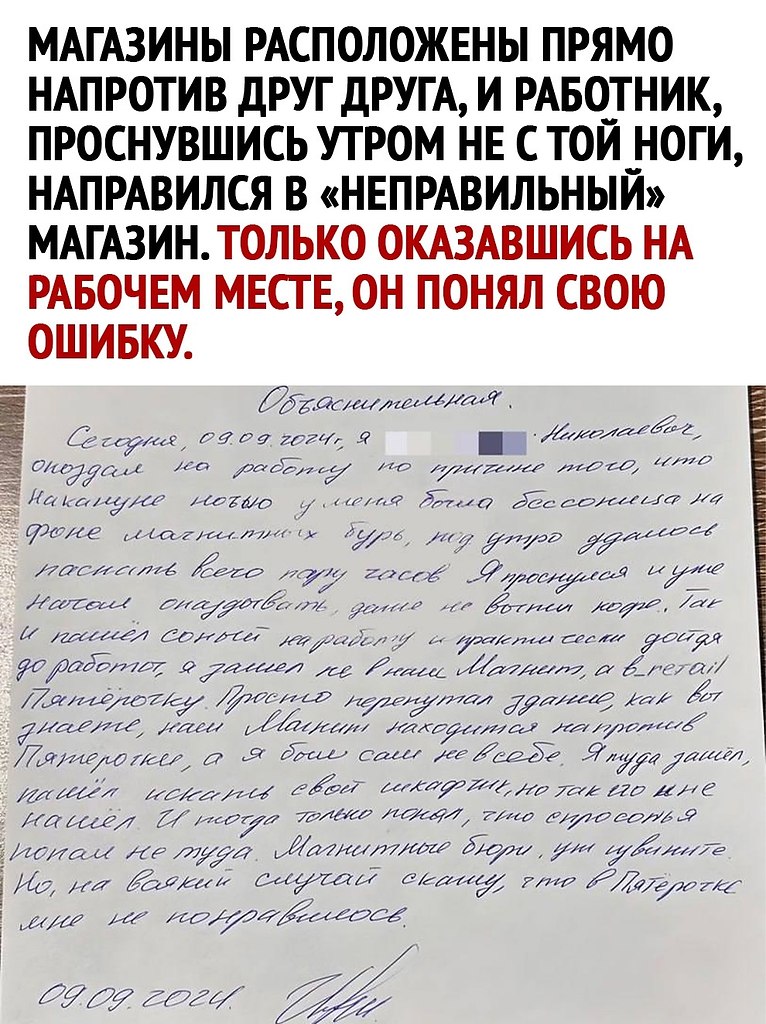 МАГАЗИНЫ РАСПОЛОЖЕНЫ ПРЯМО
НАПРОТИВ ДРУГ ДРУГА, И РАБОТНИК,
ПРОСНУВШИСЬ УТРОМ НЕ С ТОЙ НОГИ,
НАПРАВИЛСЯ В «НЕПРАВИЛЬНЫЙ»
МАГАЗИН. ТОЛЬКО ОКАЗАВШИСЬ НА
РАБОЧЕМ МЕСТЕ, ОН ПОНЯЛ СВОЮ
ОШИБКУ.
Объяснительная.
Сегодня, 09.09.2024г, я Николаевич,
опоздал на работу по причине того, что
накануне ночью у меня была бессоница на
фоне магнитных бурь, под утро удалось
паспать всего пару часов Я проснулся и уже
начал опаздывать, даже не выпил кофе. Так
и пашёл соный на работу и практически дойдя
до работы, я зашел не в наш Магнит, а в_retail
Пятёрочку. Просто перепутал здание, как вы
знаете, наш Магнит находится напротив
Пятерочки, а я был сам не в себе. Я туда зашёл,
пашёл искать свой шкафчик, но так его и не
нашёл. И тогда только понял, что спросонья
попал не туда. Магнитные бюри, уж извините.
Но, на всякий случай скажу, что в Пятёрочке
мне не понравилось.
09.09.2024.